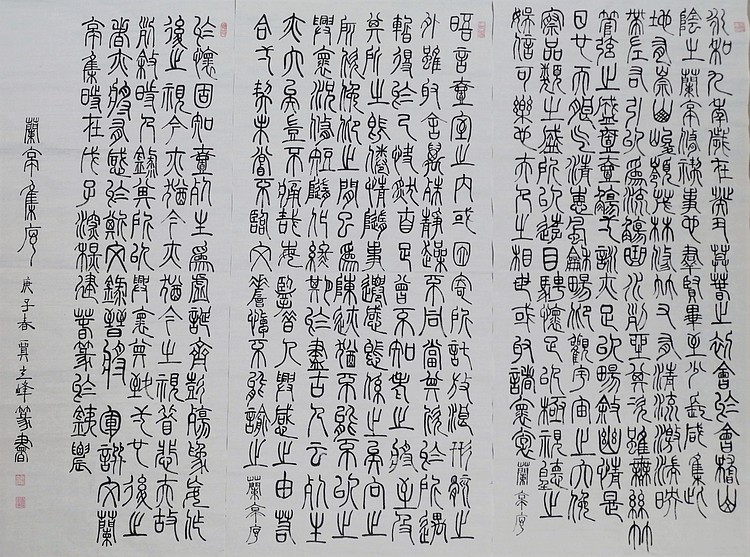 永和九年歲在癸丑暮春之初會於會稽山
陰之蘭亭脩禊事也羣賢畢至少長咸集此
地有崇山峻領茂林脩竹又有清流激湍映
帶左右引以為流觴曲水列坐其次雖無絲竹
管弦之盛壹觴壹詠亦足以暢敘幽情是
日也天朗氣清惠風和暢仰觀宇宙之大俯
察品類之盛所以遊目騁懷足以極視聽之
娛信可樂也夫人之相與世或取諸懷抱 蘭亭序
晤言壹室之內或因寄所託放浪形骸之
外雖取舍萬殊靜躁不同當其欣於所遇
暫得於己快然自足曾不知老之將至及
其所之既倦情隨事遷感慨係之矣向之
所欣俛仰之間以為陳迹猶不能不以之
興懷況脩短隨化終期於盡古人云死生
亦大矣豈不痛哉每覽昔人興感之由若
合一契未嘗不臨文嗟悼不能諭之 蘭亭序
於懷固知壹死生為虛誕齊彭殤為妄作
後之視今亦猶今亦猶今之視昔悲夫故
列敘時人錄其所以興懷其致一也後之
者亦將有感於斯文錄晉將軍詠文蘭
亭集時在戊子 篆於
蘭亭集序
庚子春冀士峰篆書